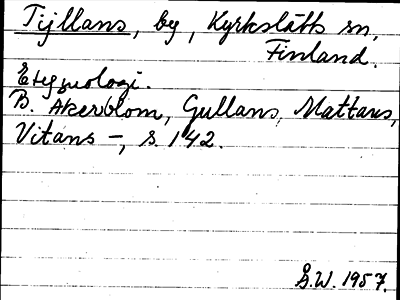 Tijllans, by, Kyrkslätts sn,
Finland.
Etymologi.
B. Åkerblom, Gullans, Mattans,
Vitans –, s. 142.
G.W. 1957.